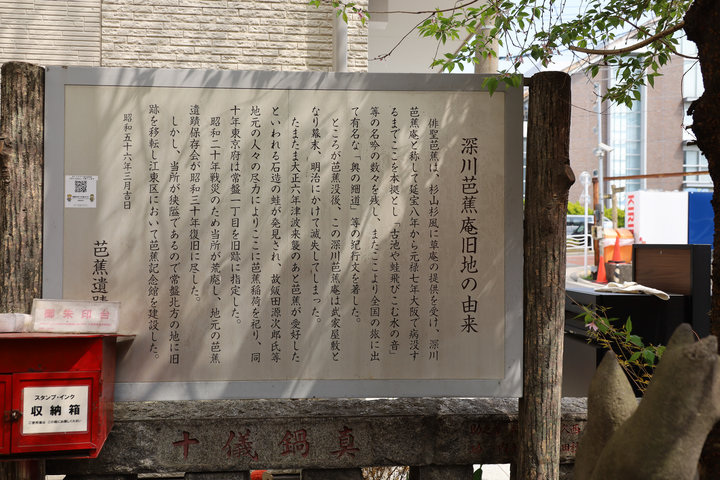 深川芭蕉庵旧地の由来
俳聖芭蕉は、杉山杉風に草庵の提供を受け、深川
芭蕉庵と称して延宝八年から元禄七年大阪で病没す
るまでここを本拠とし「古池や蛙飛びこむ水の音」
等の名吟の数々を残し、またここより全国の旅に出
て有名な「奥の細道」等の紀行文を著した。
ところが芭蕉没後、この深川芭蕉庵は武家屋敷と
なり幕末、明治にかけて滅失してしまった。
たまたま大正六年津波来襲のあと芭蕉が愛好した
といわれる石造の蛙が発見され、故飯田源次郎氏等
地元の人々の尽力によりここに芭蕉稲荷を祀り、同
十年東京府は常盤一丁目を旧跡に指定した。
昭和二十年戦災のため当所が荒廃し、地元の芭蕉
遺蹟保存会が昭和三十年復旧に尽した。
しかし、当所が狭隘であるので常盤北方の地に旧
跡を移転し江東区において芭蕉記念館を建設した。
昭和五十六年三月吉日
芭蕉遺蹟
御朱印台
スタンプ・インク
収納箱
十儀鍋真